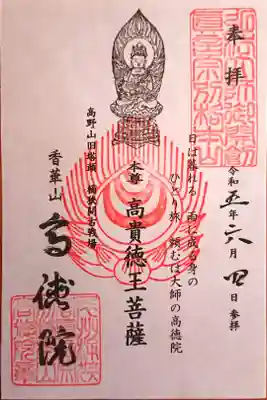 奉拝
令和五年六月四日参拝
日は暮れる 雨に成る身の
ひとり旅 頼むは大師の高徳院
本尊 高貴徳王菩薩
高野山旧塔頭 桶狭間古戦場
香華山
高徳院